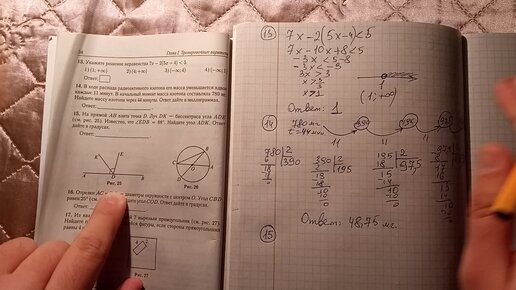 34 Глава I. Тренировочные варианты
13. Укажите решение неравенства 7x − 2(5x − 4) < 5.
1) (1; +∞) 2) (4; +∞) 3) (−∞; 4) 4) (−∞; 1)
Ответ:
14. В ходе распада радиоактивного изотопа его масса уменьшается вдвое
каждые 11 минут. В начальный момент масса изотопа составляла 780 мг.
Найдите массу изотопа через 44 минуты. Ответ дайте в миллиграммах.
Ответ:
15. На прямой AB взята точка D. Луч DK — биссектриса угла ADE
(см. рис. 25). Известно, что ∠EDB = 88°. Найдите угол ADK. Ответ дайте
в градусах.
Ответ:
K E
A D B
Рис. 25
Рис. 26
16. Отрезки AC и диаметры окружности с центром O. Угол CBD
равен 25° (см. угол COD. Ответ дайте в градусах.
Ответ:
17. Из квадрата прямоугольник (см. рис. 27).
фигуры, если сторона прямоугольника
равны 4
Рис. 27
13 7x − 2(5x − 4) < 5
7x − 10x + 8 < 5
−3x < 5 − 8
−3x < −3
3x > 3
x > 3
x > 1
1
(1; +∞)
Ответ: 1
14 780 мг
t = 44 мин
390 195
11 11 11
780 2 390
390 2 195
195 2 97,5
Ответ: 48,75 мг.
15